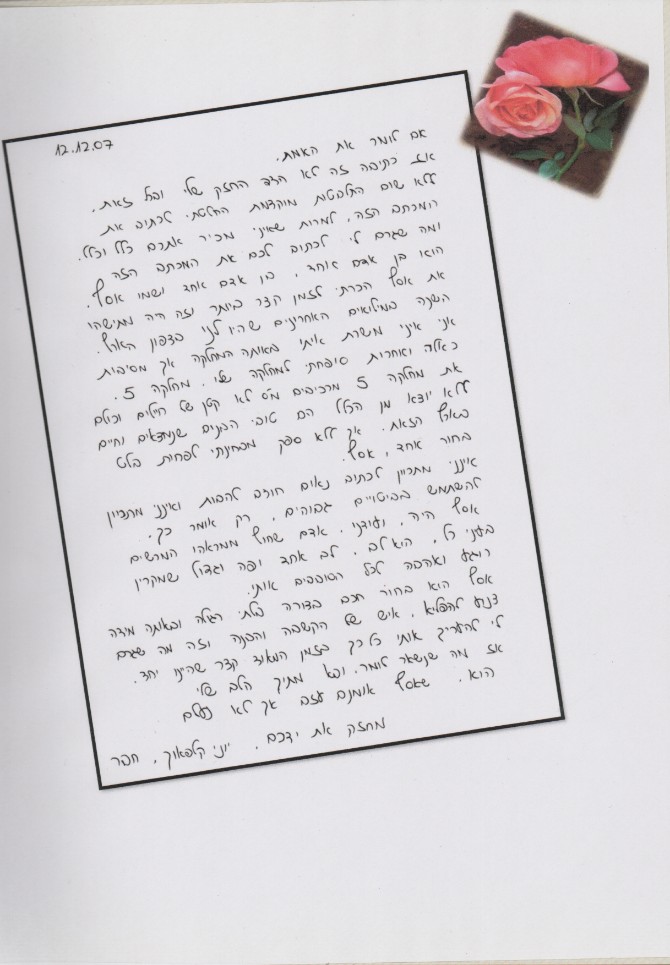 12.12.07
אם לומר את האמת.
אז כתיבה זה לא הצד החזק שלי ובכל זאת,
ללא שום התלבטות מוקדמת החלטתי לכתוב את
המכתב הזה, למרות שאיני מכיר אתכם כלל וכלל.
ומה שגרם לי לכתוב לכם את המכתב הזה
הוא בן אדם אחד, בן אדם אחד ושמו אסף.
את אסף הכרתי לזמן קצר ביותר וזה היה מתישהו
השנה במילואים האחרונים שהיו לנו בצפון הארץ.
אני איני משרת איתו באותה המחלקה אך מסיבות
כאלה ואחרות סופחתי למחלקה שלו. מחלקה 5.
את מחלקה 5 מרכיבים מס' לא קטן של חיילים וכולם
ללא יוצא מן הכלל הם טובי הבנים שנמצאים וחיים
בארץ הזאת. אך ללא ספק מבחינתי לפחות בלט
בחור אחד, אסף.
אינני מתכוון לכתוב נאום חוצב להבות ואינני מתכוון
להשתמש בביטויים גבוהים, רק אומר כך.
אסף היה, ועודנו, אדם שחוץ ממראהו המרשים
בעיני כל, הוא לב. לב אחד יפה וגדול שמקרין
רוגע ואהבה לכל הסובבים אותו.
אסף הוא בחור חכם בצורה בלתי רגילה ובאותה מידה
צנוע להפליא, איש של הקשבה והבנה וזה מה שגרם
לי להעריך אותו כל כך בזמן המאוד קצר שהיינו יחד.
אז מה שנשאר לומר, ובא מתוך הלב שלי
הוא. שאסף אומנם עזב אך לא נעלם
מחזק את ידכם, יוני קלפאוך, חבר